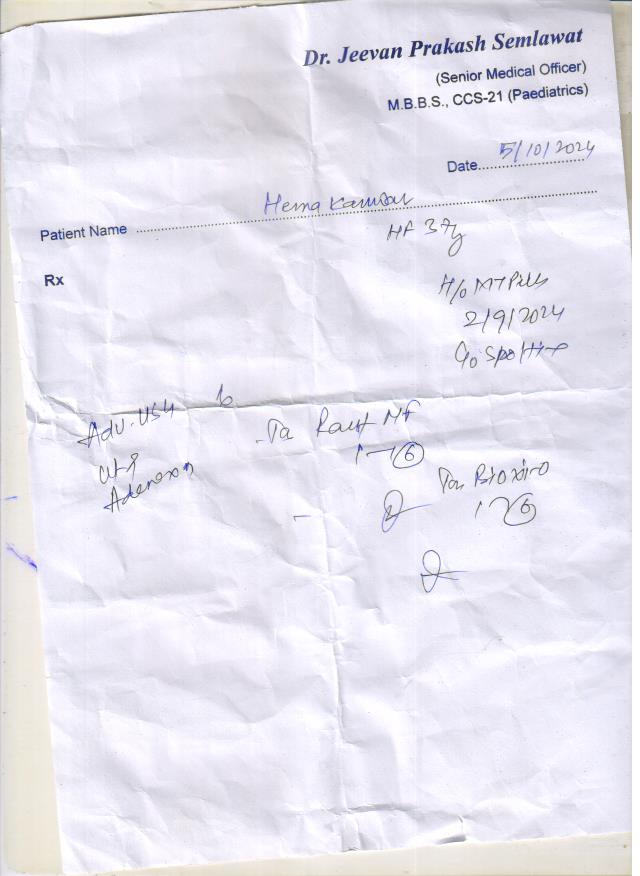 Dr. Jeevan Prakash Semlawat
(Senior Medical Officer)
M.B.B.S., CCS-21 (Paediatrics)
Date 5/10/2024
Patient Name Hema Kanwar
HF 37y
Rx
H/o MT Pills
2/9/2024
C/o Spotting
Adv. USG
Ut &
Adenexa
MF
1-6
1-6